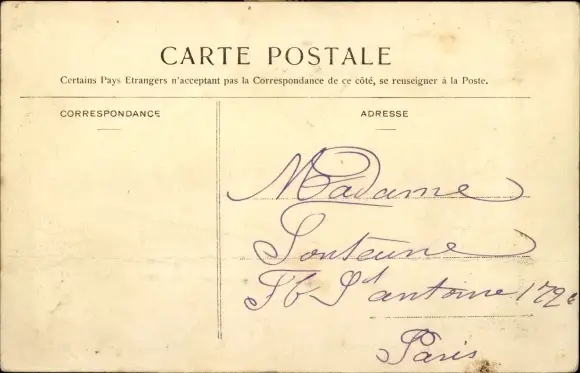 CARTE POSTALE
Certains Pays Etrangers n'acceptant pas la Correspondance de ce côté, se renseigner à la Poste.
CORRESPONDANCE
ADRESSE
Madame
Fb St antoine 179
Paris